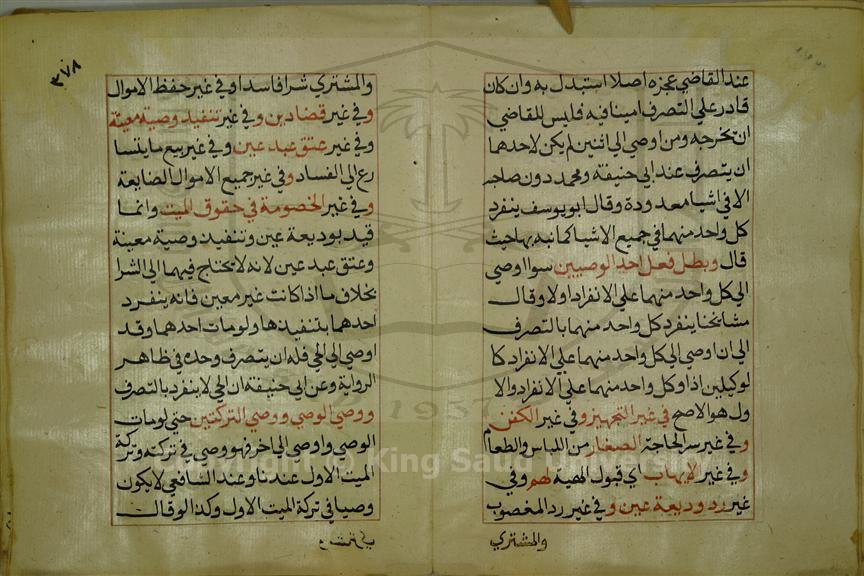 عند القاضي عجزه اصلا استبدل به وان كان
قادر علي التصرف امينا فيه فليس للقاضي
ان يخرجه ومن اوصي الي اثنين لم يكن لاحدهما
ان يتصرف عند ابي حنيفة ومحمد دون صاحبه
الا في اشيا معدودة وقال ابو يوسف ينفرد
كل واحد منهما في جميع الاشيا كما نبه بها حيث
قال وبطل فعل احد الوصيين سوا اوصي
الي كل واحد منهما علي الانفراد اولا وقال
مشايخنا ينفرد كل واحد منهما بالتصرف
الي ان اوصي الي كل واحد منهما علي الانفراد كا
لوكيلين اذا وكل واحد منهما علي الانفراد والا
ول هو الاصح في غير التجهيز وفي غير الكفن
وفي غير سر الحاجة الصغار من اللباس والطعام
وفي غير لايهاب اي قبول الهبة لهم وفي
غير رد وديعة عين وفي غير رد المغصوب
والمشتري
٣٧٨
والمشتري شرا فاسدا وفي غير حفظ الاموال
وفي غير قضا دين وفي غير تنفيذ وصية معينة
وفي غير عتق عبد عين وفي غير بيع ما يتسا
رع الي الفساد وفي غير جميع الاموال الضايعة
وفي غير الخصومة في حقوق الميت وانما
قيد بوديعة عين وتنفيذ وصية معينة
وعتق عبد عين لانه لا يحتاج فيهما الي الشرا
بخلاف ما اذا كانت غير معين فانه ينفرد
احدهما بتنفيذها ولو مات احدهما وقد
اوصي الي الحي فله ان يتصرف وحده في ظاهر
الرواية وعن ابي حنيفة ان الحي لا ينفرد بالتصرف
ووصي الوصي ووصي التركتين حتي لو مات
الوصي واوصي الي اخر فهو وصي في تركته وتركة
الميت الاول عندنا وعند الشافعي لا يكون
وصيا في تركة الميت الاول وكذا لو قال
Copyright © King Saud University
1957